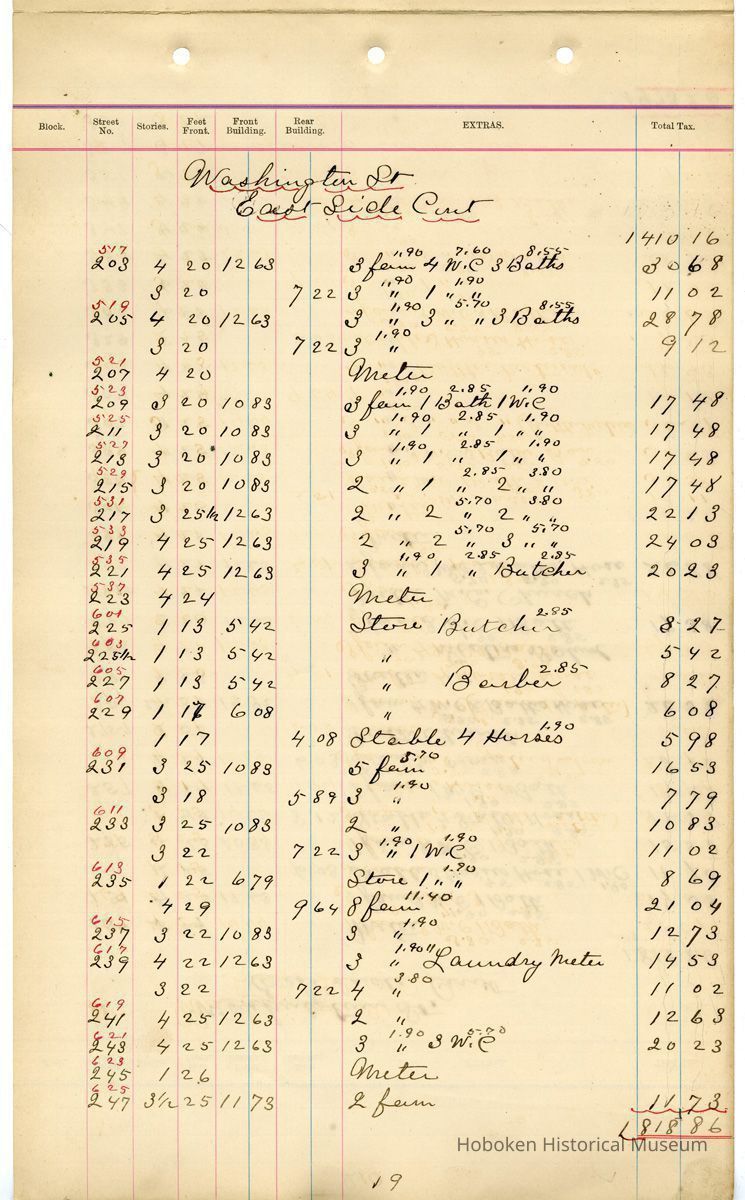 Block. Street No. Stories. Feet Front. Front Building. Rear Building. EXTRAS. Total Tax.
Washington St
East Side Cont
1410 16
517
1.90 7.60 8.55
203 4 20 12 63 3 fam 4 W.C 3 Baths 30 68
1.90 1.90
3 20 7 22 3 " 1 " " 11 02
519
1.90 5.70 8.55
205 4 20 12 63 3 " 3 " " 3 Baths 28 78
1.90
3 20 7 22 3 " 9 12
521
207 4 20 Meter
523
1.90 2.85 1.90
209 3 20 10 83 3 fam 1 Bath 1 W.C 17 48
525
1.90 2.85 1.90
211 3 20 10 83 3 " 1 " 1 " " 17 48
527
1.90 2.85 1.90
213 3 20 10 83 3 " 1 " 1 " " 17 48
529
2.85 3.80
215 3 20 10 83 2 " 1 " 2 " " 17 48
531
5.70 3.80
217 3 25½ 12 63 2 " 2 " 2 " " 22 13
533
5.70 5.70
219 4 25 12 63 2 " 2 " 3 " " 24 03
535
1.90 2.85 2.85
221 4 25 12 63 3 " 1 " Butcher 20 23
537
223 4 24 Meter
601
2.85
225 1 13 5 42 Store Butcher 8 27
603
225½ 1 13 5 42 " 5 42
605
2.85
227 1 13 5 42 " Barber 8 27
607
229 1 17 6 08 " 6 08
1.90
1 17 4 08 Stable 4 Horses 5 98
609
5.70
231 3 25 10 83 5 fam 16 53
1.90
3 18 5 89 3 " 7 79
611
233 3 25 10 83 2 " 10 83
1.90 1.90
3 22 7 22 3 " 1 W.C 11 02
613
1.90
235 1 22 6 79 Store 1 " " 8 69
11.40
4 29 9 64 8 fam 21 04
615
1.90
237 3 22 10 83 3 " 12 73
617
1.90 "
239 4 22 12 63 3 " Laundry Meter 14 53
3.80
3 22 7 22 4 " 11 02
619
241 4 25 12 63 2 " 12 63
621
1.90 5.70
243 4 25 12 63 3 " 3 W.C 20 23
623
245 1 26 Meter
625
247 3½ 25 11 73 2 fam 11 73
1818 86
Hoboken Historical Museum
19